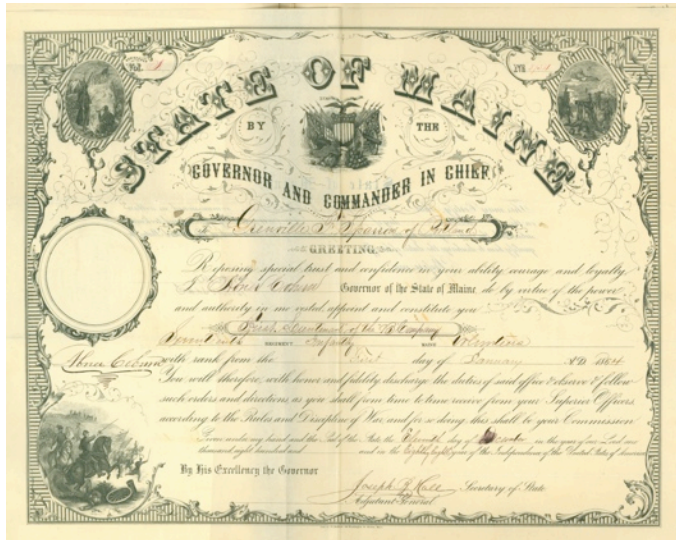 STATE OF MAINE
BY THE
GOVERNOR AND COMMANDER IN CHIEF
To Grenville F. Sparrow of Portland
GREETING.
Reposing special trust and confidence in your ability, courage and loyalty,
I Abner Coburn Governor of the State of Maine, do by virtue of the power
and authority in me vested, appoint and constitute you
First Lieutenant of the Company
Seventeenth REGIMENT Infantry MAINE Volunteers
Abner Coburn
with rank from the First day of January A.D. 1864
You will therefore, with honor and fidelity discharge the duties of said office & observe & follow
such orders and directions, as you shall from time to time receive from your Superior Officers,
according to the Rules and Discipline of War, and for so doing this shall be your Commission
Given under my hand and the Seal of the State the day of in the year of our Lord one
thousand eight hundred and and in the Eighty eighth year of the Independence of the United States of America
By His Excellency the Governor
Joseph B. Hall Secretary of State
Adjutant General